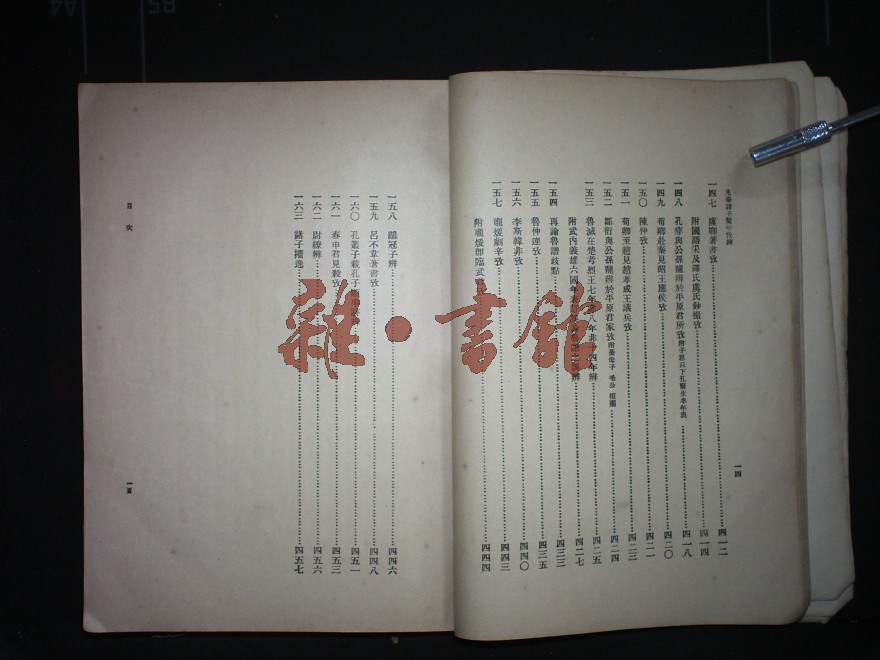 先秦諸子繫年攷辨
一四七 虞卿著書攷……四一二
附國語采及鐸氏虞氏鈔撮攷……四一四
一四八 孔穿與公孫龍辨於平原君所攷附子思以下孔實生卒年表……四一八
一四九 荀卿赴秦見昭王應侯攷……四二〇
一五〇 陳仲攷……四二一
一五一 荀卿至趙見趙孝成王議兵攷……四二三
一五二 鄒衍與公孫龍辨於平原君家攷附 毛公 桓團……四二四
一五三 魯滅在楚考烈王七年 八年非 四年辨……四二五
附武內義雄六國年表 辨……四二七
一五四 再論魯譜歧點……四三三
一五五 魯仲連攷……四三五
一五六 李斯韓非攷……四四〇
一五七 龐煖劇辛攷……四四三
附龐煖即臨武……四四四
一四
一五八 鶡冠子辨……四四六
一五九 呂不韋著書攷……四四八
一六〇 孔叢子載孔子……四五一
一六一 春申君見殺攷……四五三
一六二 尉繚辨……四五六
一六三 諸子攟逸……四五七
目次
一五
雜·書館